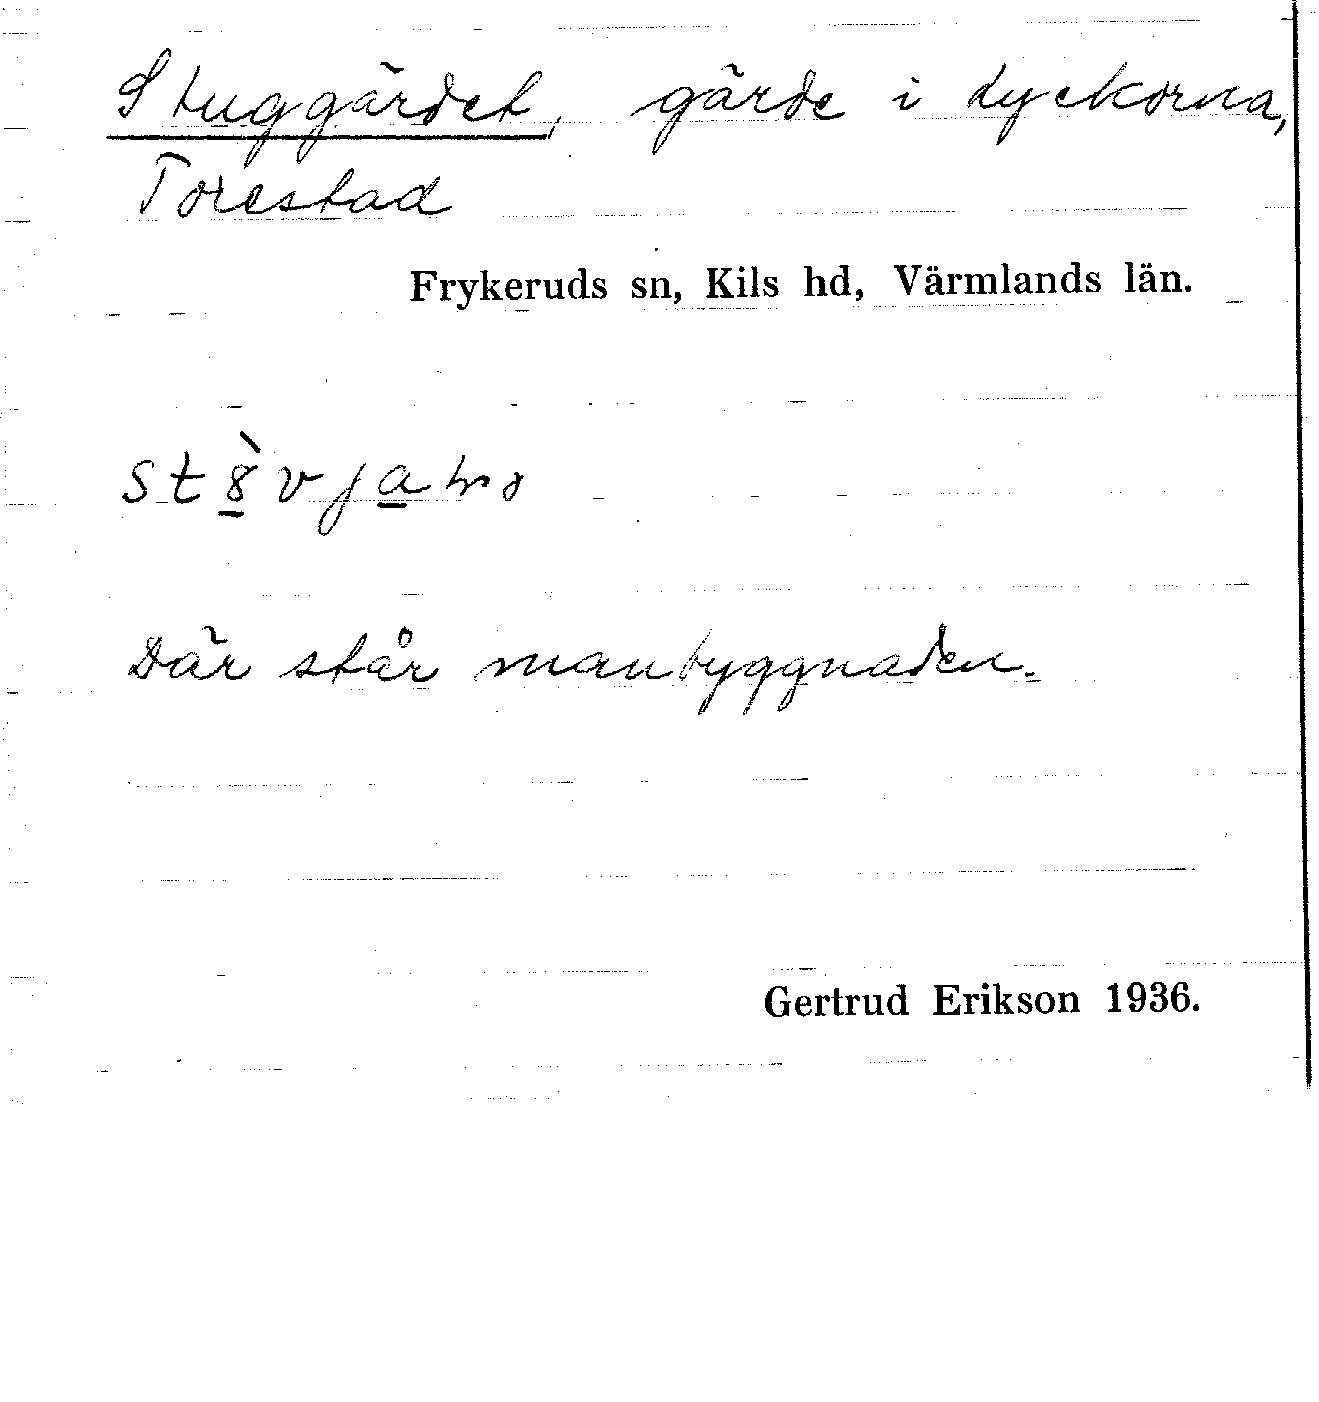 Stuggärdet, gärde i Lyckorna,
Torestad
Frykeruds sn, Kils hd, Värmlands län.
Där står manbyggnaden.
Gertrud Erikson 1936.